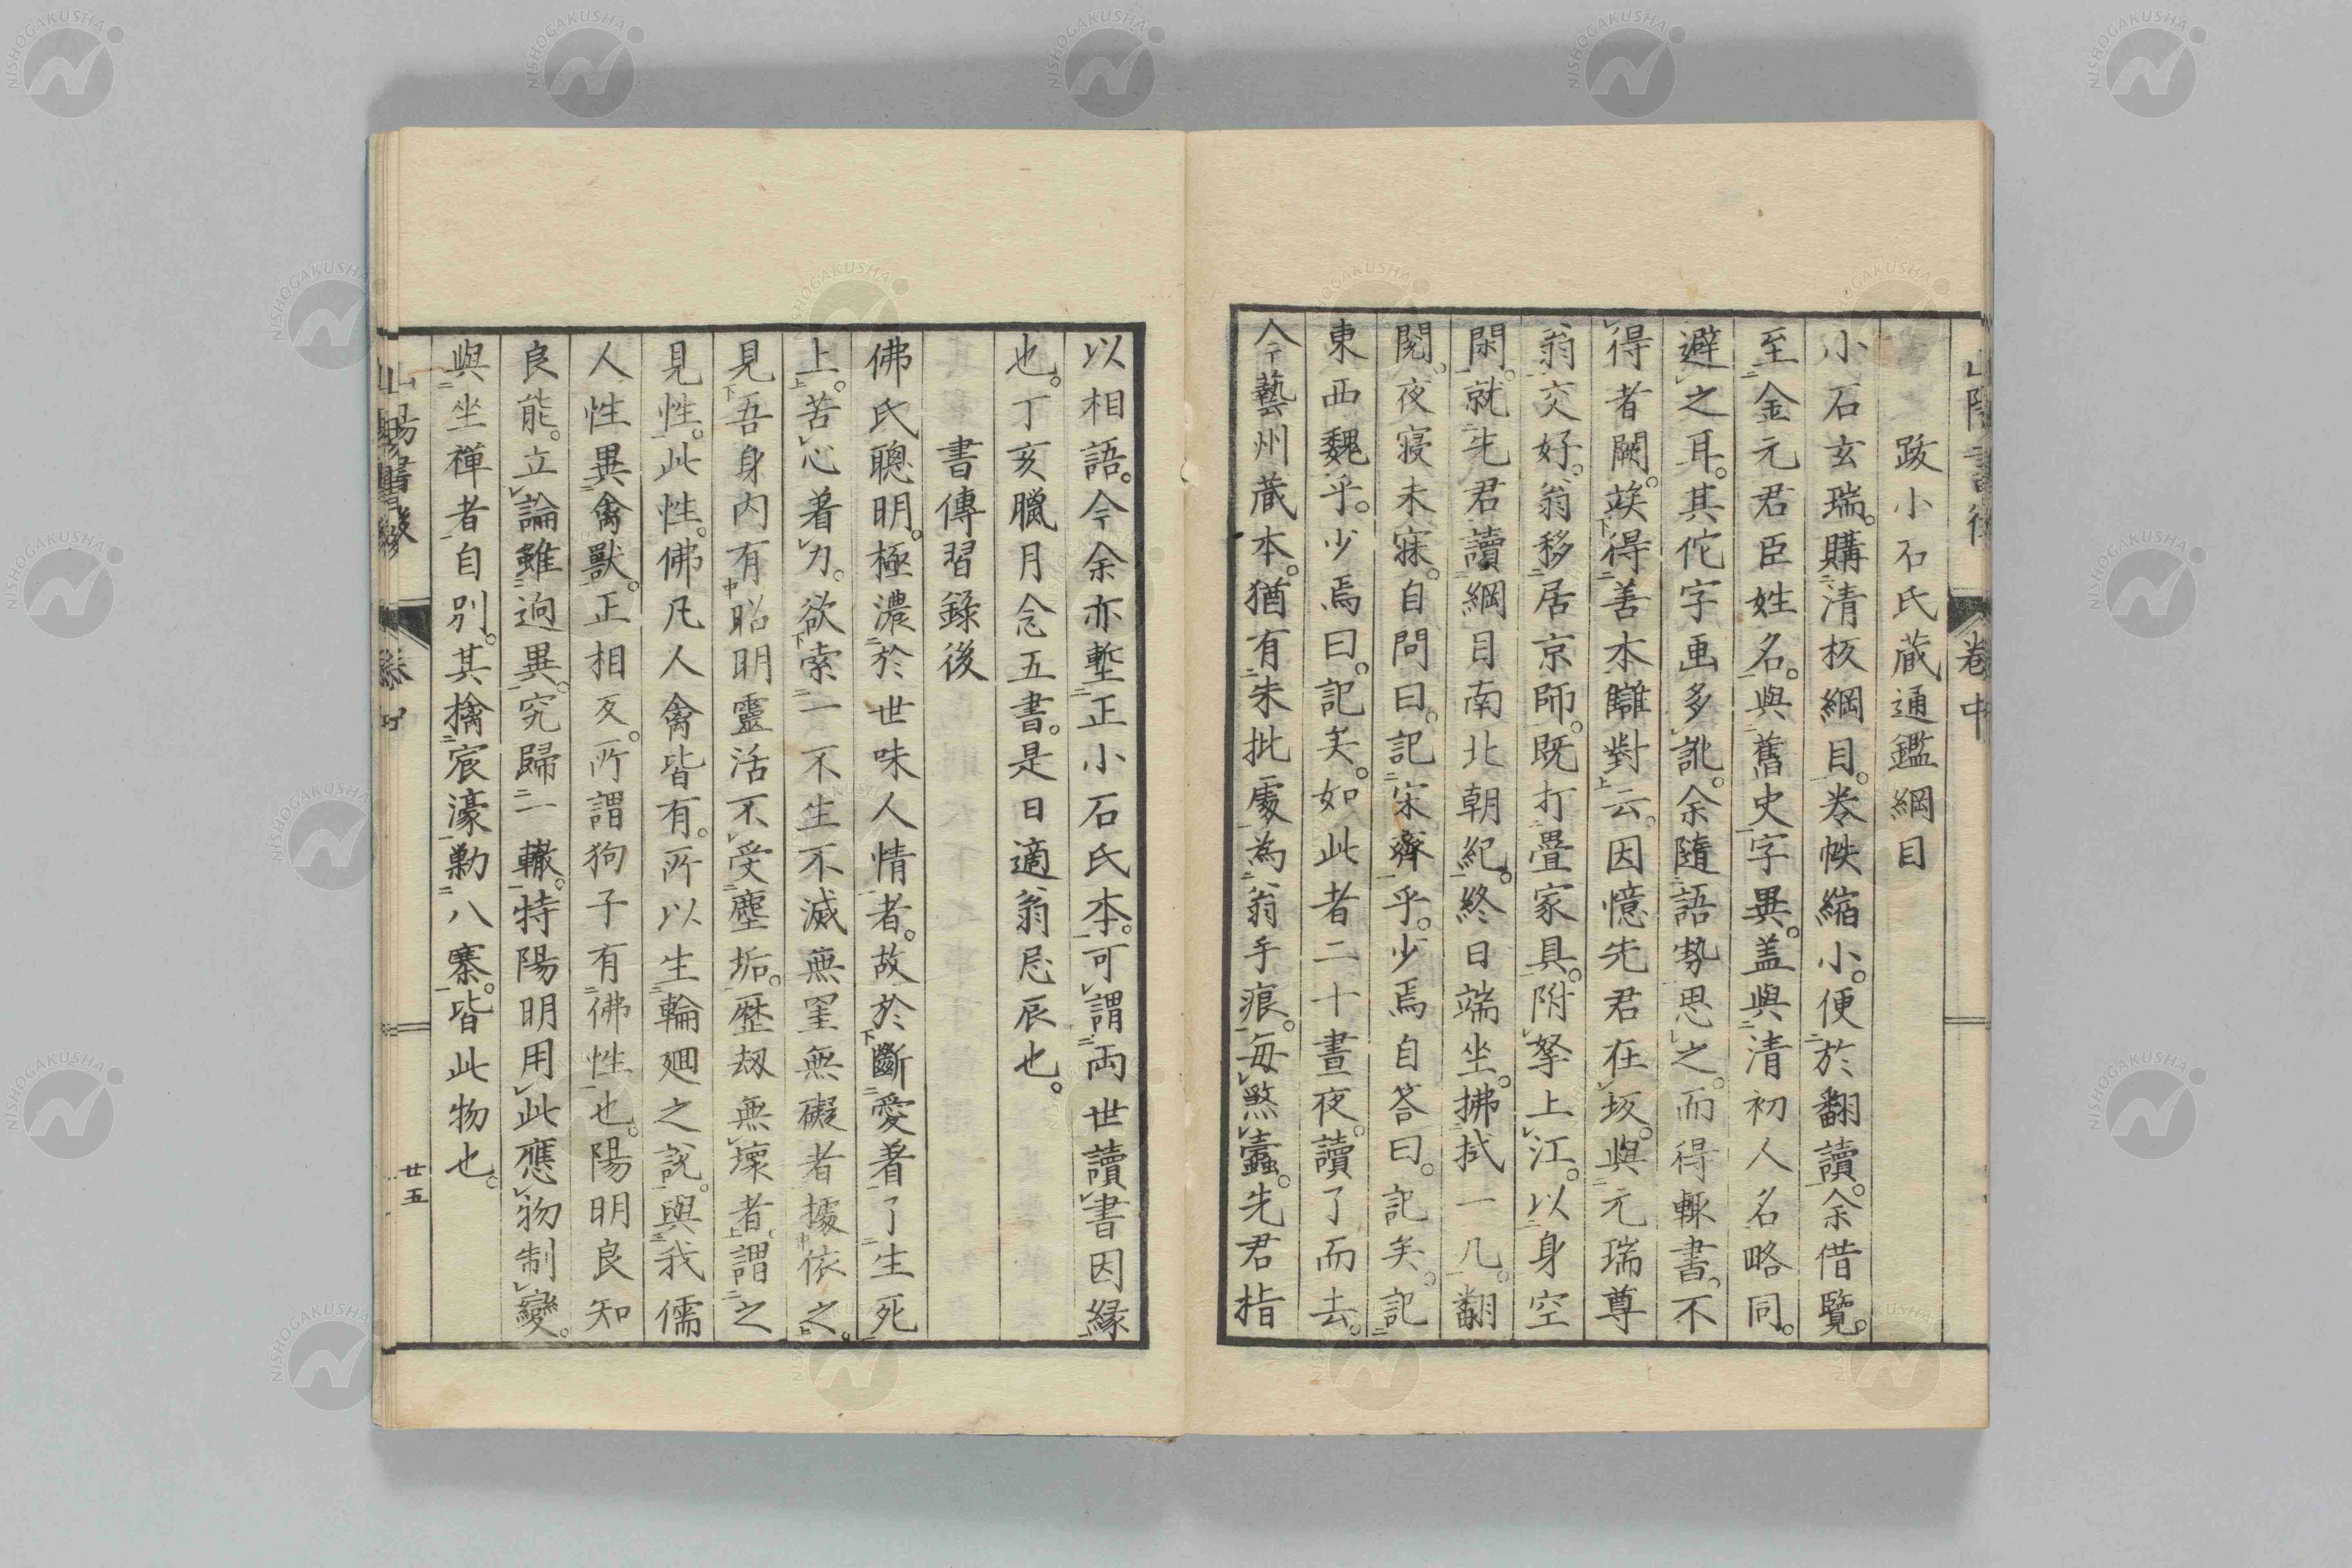 跋小石氏蔵通鑑綱目
小石玄瑞。購清板綱目。巻帙縮小。便於翻讀。余借覽。
至金元君臣姓名。與舊史字異。盖與清初人名略同。
避之耳。其佗字画多訛。余隨語勢思之。而得輙書。不
得者闕。竢得善本讎對云。因憶先君在坂。與元瑞尊
翁交好。翁移居京師。既打疊家具。附拏上江。以身空
閑。就先君讀綱目南北朝紀。終日端坐。拂拭一几。翻
閱。夜寝未寐。自問曰。記宋齊乎。少焉自答曰。記矣。記
東西魏乎。少焉曰。記矣。如此者二十晝夜。讀了而去。
今藝州蔵本。猶有朱批處。為翁手痕。毎煞蠹。先君指
以相語。今余亦塹正小石氏本。可謂両世讀書因縁
也。丁亥臘月念五書。是日適翁忌辰也。
書傳習錄後
佛氏聰明。極濃於世味人情者。故於斷愛着了生死
上。苦心着力。欲索一不生不滅無罣無礙者據依之。
見吾身内有昭明靈活不受塵垢。歴劫無壞者。謂之
見性。此性。佛凡人禽皆有。所以生輪廻之説。與我儒
人性異禽獸。正相反。所謂狗子有佛性也。陽明良知
良能。立論雖逈異。究歸一轍。特陽明用此應物制變。
與坐禪者自別。其擒宸濠勦八寨。皆此物也。
卷中
廿五